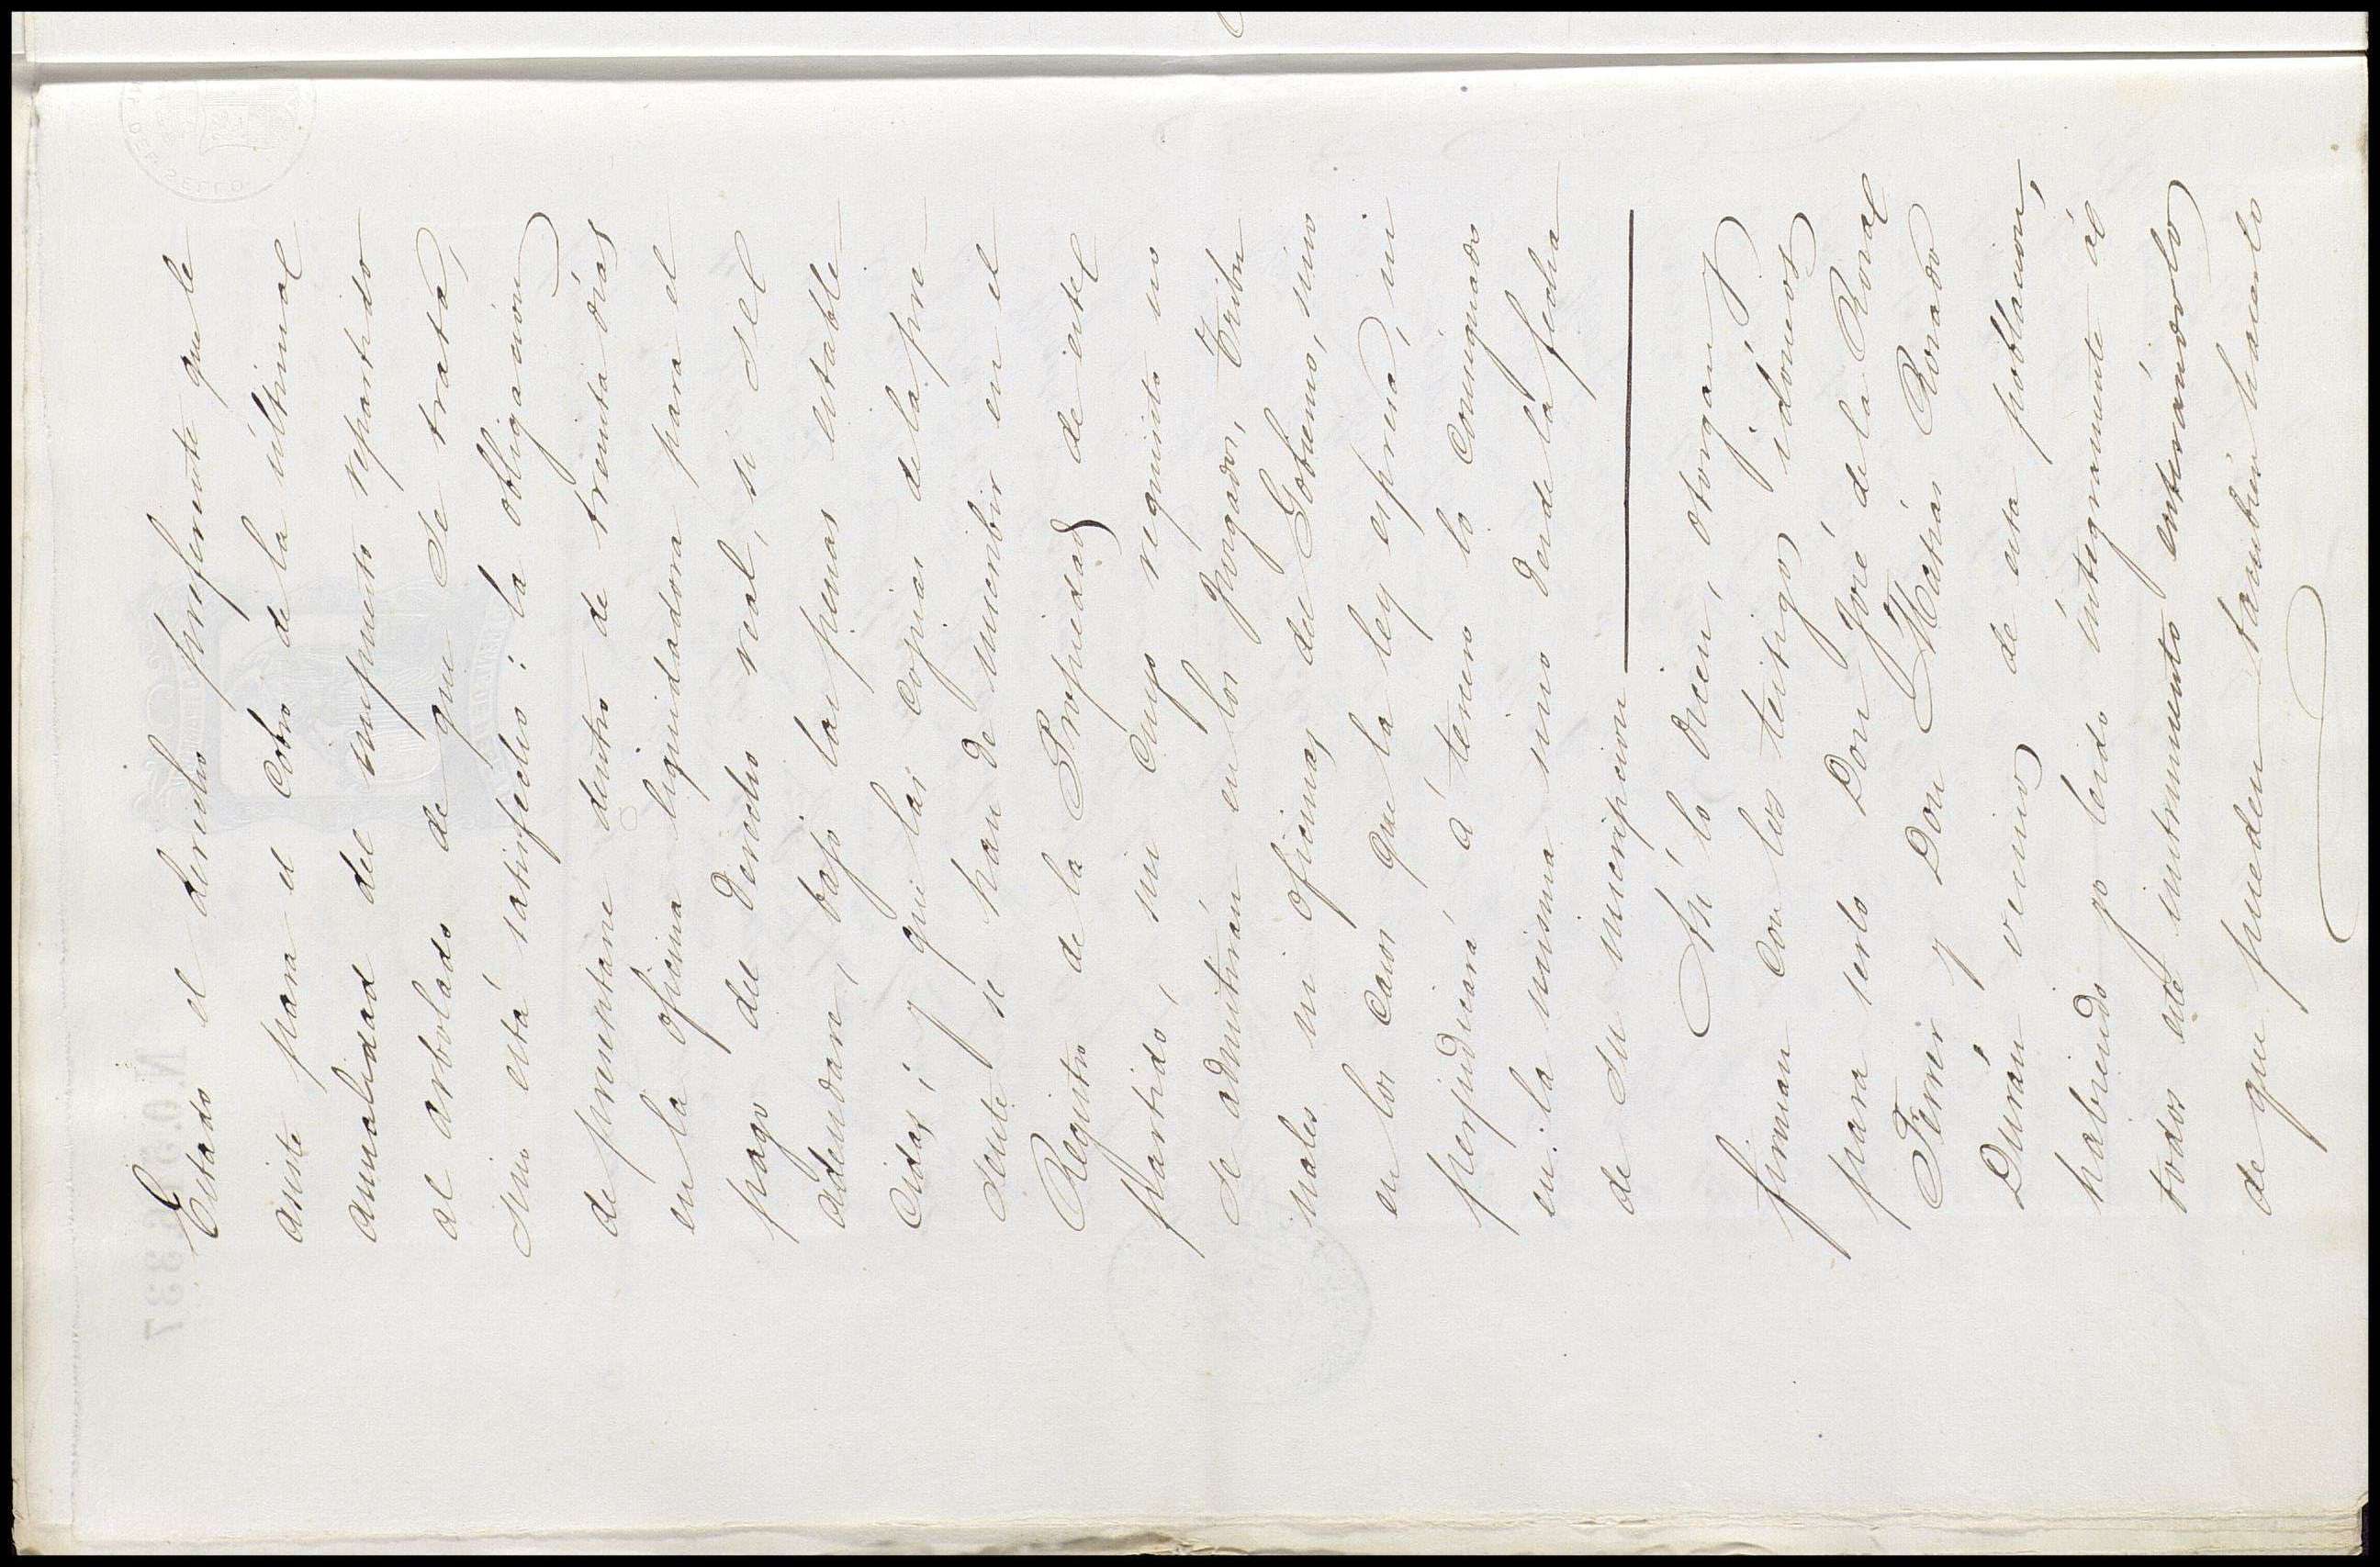 Estado el derecho preferente que le
asiste para el cobro de la última
anualidad del impuesto repartido
al arbolado de que se trata,
sino está satisfecho: la obligacion
de presentarse dentro de treinta dias
en la oficina liquidadora para el
pago del derecho real, si se
adeudare, bajo las penas estable
cidas; y que las copias de la pre
sente se han de inscribir en el
Registro de la Propiedad de este
partido, sin cuyo requisito no
se admitirán en los Juzgados, Tribu
nales ni oficinas del Gobierno, sino
en los casos que la ley espresa, ni
perjudicará á tercero lo consignado
en la misma sino desde la fecha
de su inscripcion
Asi lo dicen, otorgan y
firman con los testigos idóneos
para serlo Don José de la Rosa
Ferrer y Don Matias Rosado
Durán vecinos de esta poblacion,
habiendo yo leido integramente á
todos este instrumento enterándolos
de que pueden tambien hacerlo
N.0.